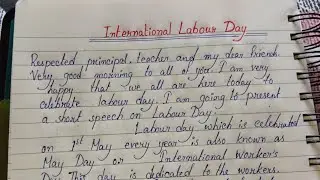 International Labour Day
Respected principal, teacher and my dear friends.
Very good morning to all of you. I am very
happy that we all are here today to
celebrate labour day. I am going to present
a short speech on Labour Day.
Labour day which is celebrated
on 1st May every year is also known as
May Day or International Worker's
Day. This day is dedicated to the workers.